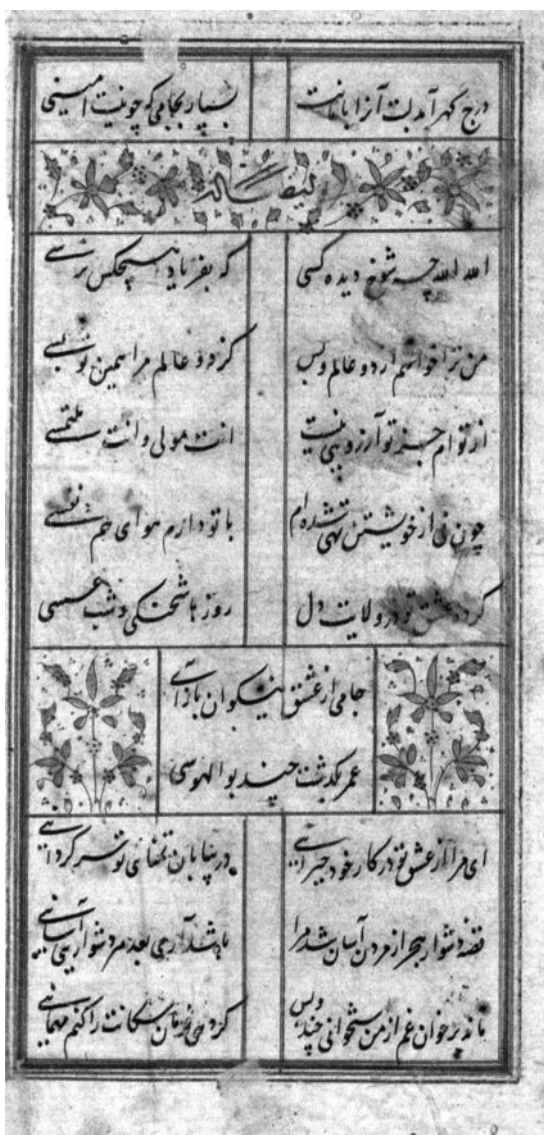 درج گهر آمد لبت آنرا بامانت بسپار بجامی که چو من نیست امینی
ایضا له
الله الله چه شوخ دیده کسی که بفریاد هیچکس نرسی
من ترا خواهم از دو عالم و بس کز دو عالم مرا همین تو بسی
از توام جز تو آرزویی نیست انت مولی وانت ملتمسی
چون نی از خویشتن تهی شده ام با تو دارم هوای هم نفسی
کرد عشق تو در ولایت دل روزها شحنگی و شب عسسی
جامی از عشق نیکوان بازآی
عمر بگذشت چند بوالهوسی
ای مرا از عشق تو در کار خود حیرانیی در بیابان تمنای تو سرگردانیی
قصه دشوار هجر از مردن آسان شد مرا باشد آری بعد هر دشواریی آسانیی
ماند بر خوان غم از من استخوانی چند و بس گر دهی فرمان سگانت را کنم مهمانیی